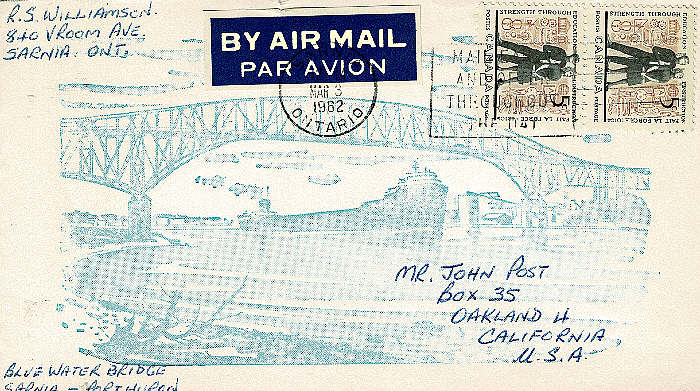 R.S. WILLIAMSON.
840 VROOM AVE.
SARNIA. ONT.
BY AIR MAIL
PAR AVION
MAR 3
1962
ONTARIO
MAIL
THROUGHOUT
THE DAY
STRENGTH THROUGH EDUCATION
POSTES CANADA POSTAGE
5
L'ÉDUCATION FAIT LA FORCE
STRENGTH THROUGH EDUCATION
POSTES CANADA POSTAGE
5
L'ÉDUCATION FAIT LA FORCE
MR. JOHN POST
BOX 35
OAKLAND 4
CALIFORNIA
U.S.A.
BLUE WATER BRIDGE
SARNIA - PORT HURON